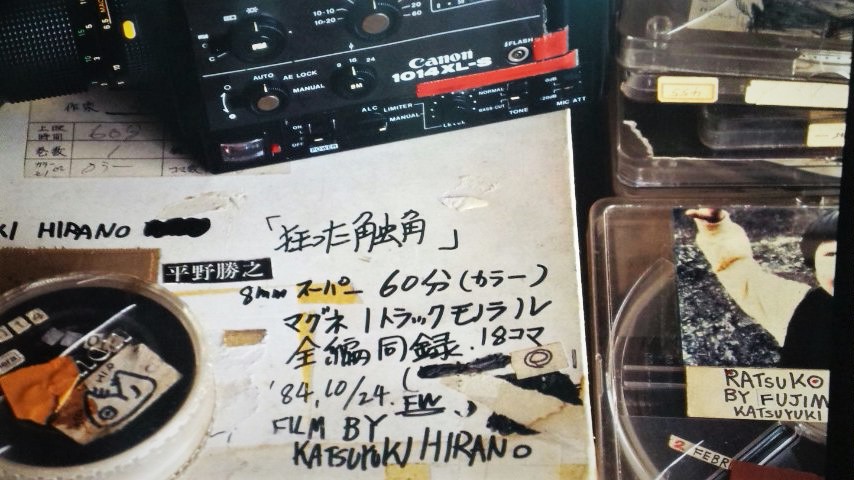 10-10
10-20
20
60
AUTO
AE LOCK
MANUAL
8 16 24
Canon
1014XL-S
FLASH
ALC LIMITER
MANUAL
LEVEL
NORMAL
BASS CUT
TONE
0dB
-20dB
MIC ATT
ON
OFF
POWER
作家
上映時間 60分
巻数 1
カラー
KI HIRANO
「狂った触角」
平野勝之
8mm スーパー 60分(カラー)
マグネ 1トラックモノラル
全編同録.18コマ
'84.10/24.
FILM BY
KATSUYUKI HIRANO
RATSUKO
BY FUJIM
KATSUYUKI
2 FEBR